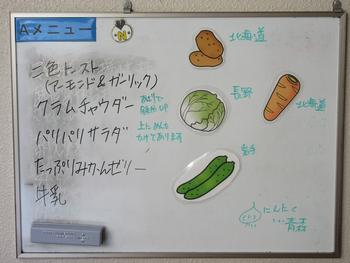 Aメニュー
N
二色トースト
(アーモンド&ガーリック)
クラムチャウダー
あさりで
鉄分UP
パリパリサラダ
上にめんが
かけてあります
たっぷりみかんゼリー
牛乳
北海道
長野
北海道
岩手
にんにく
…青森